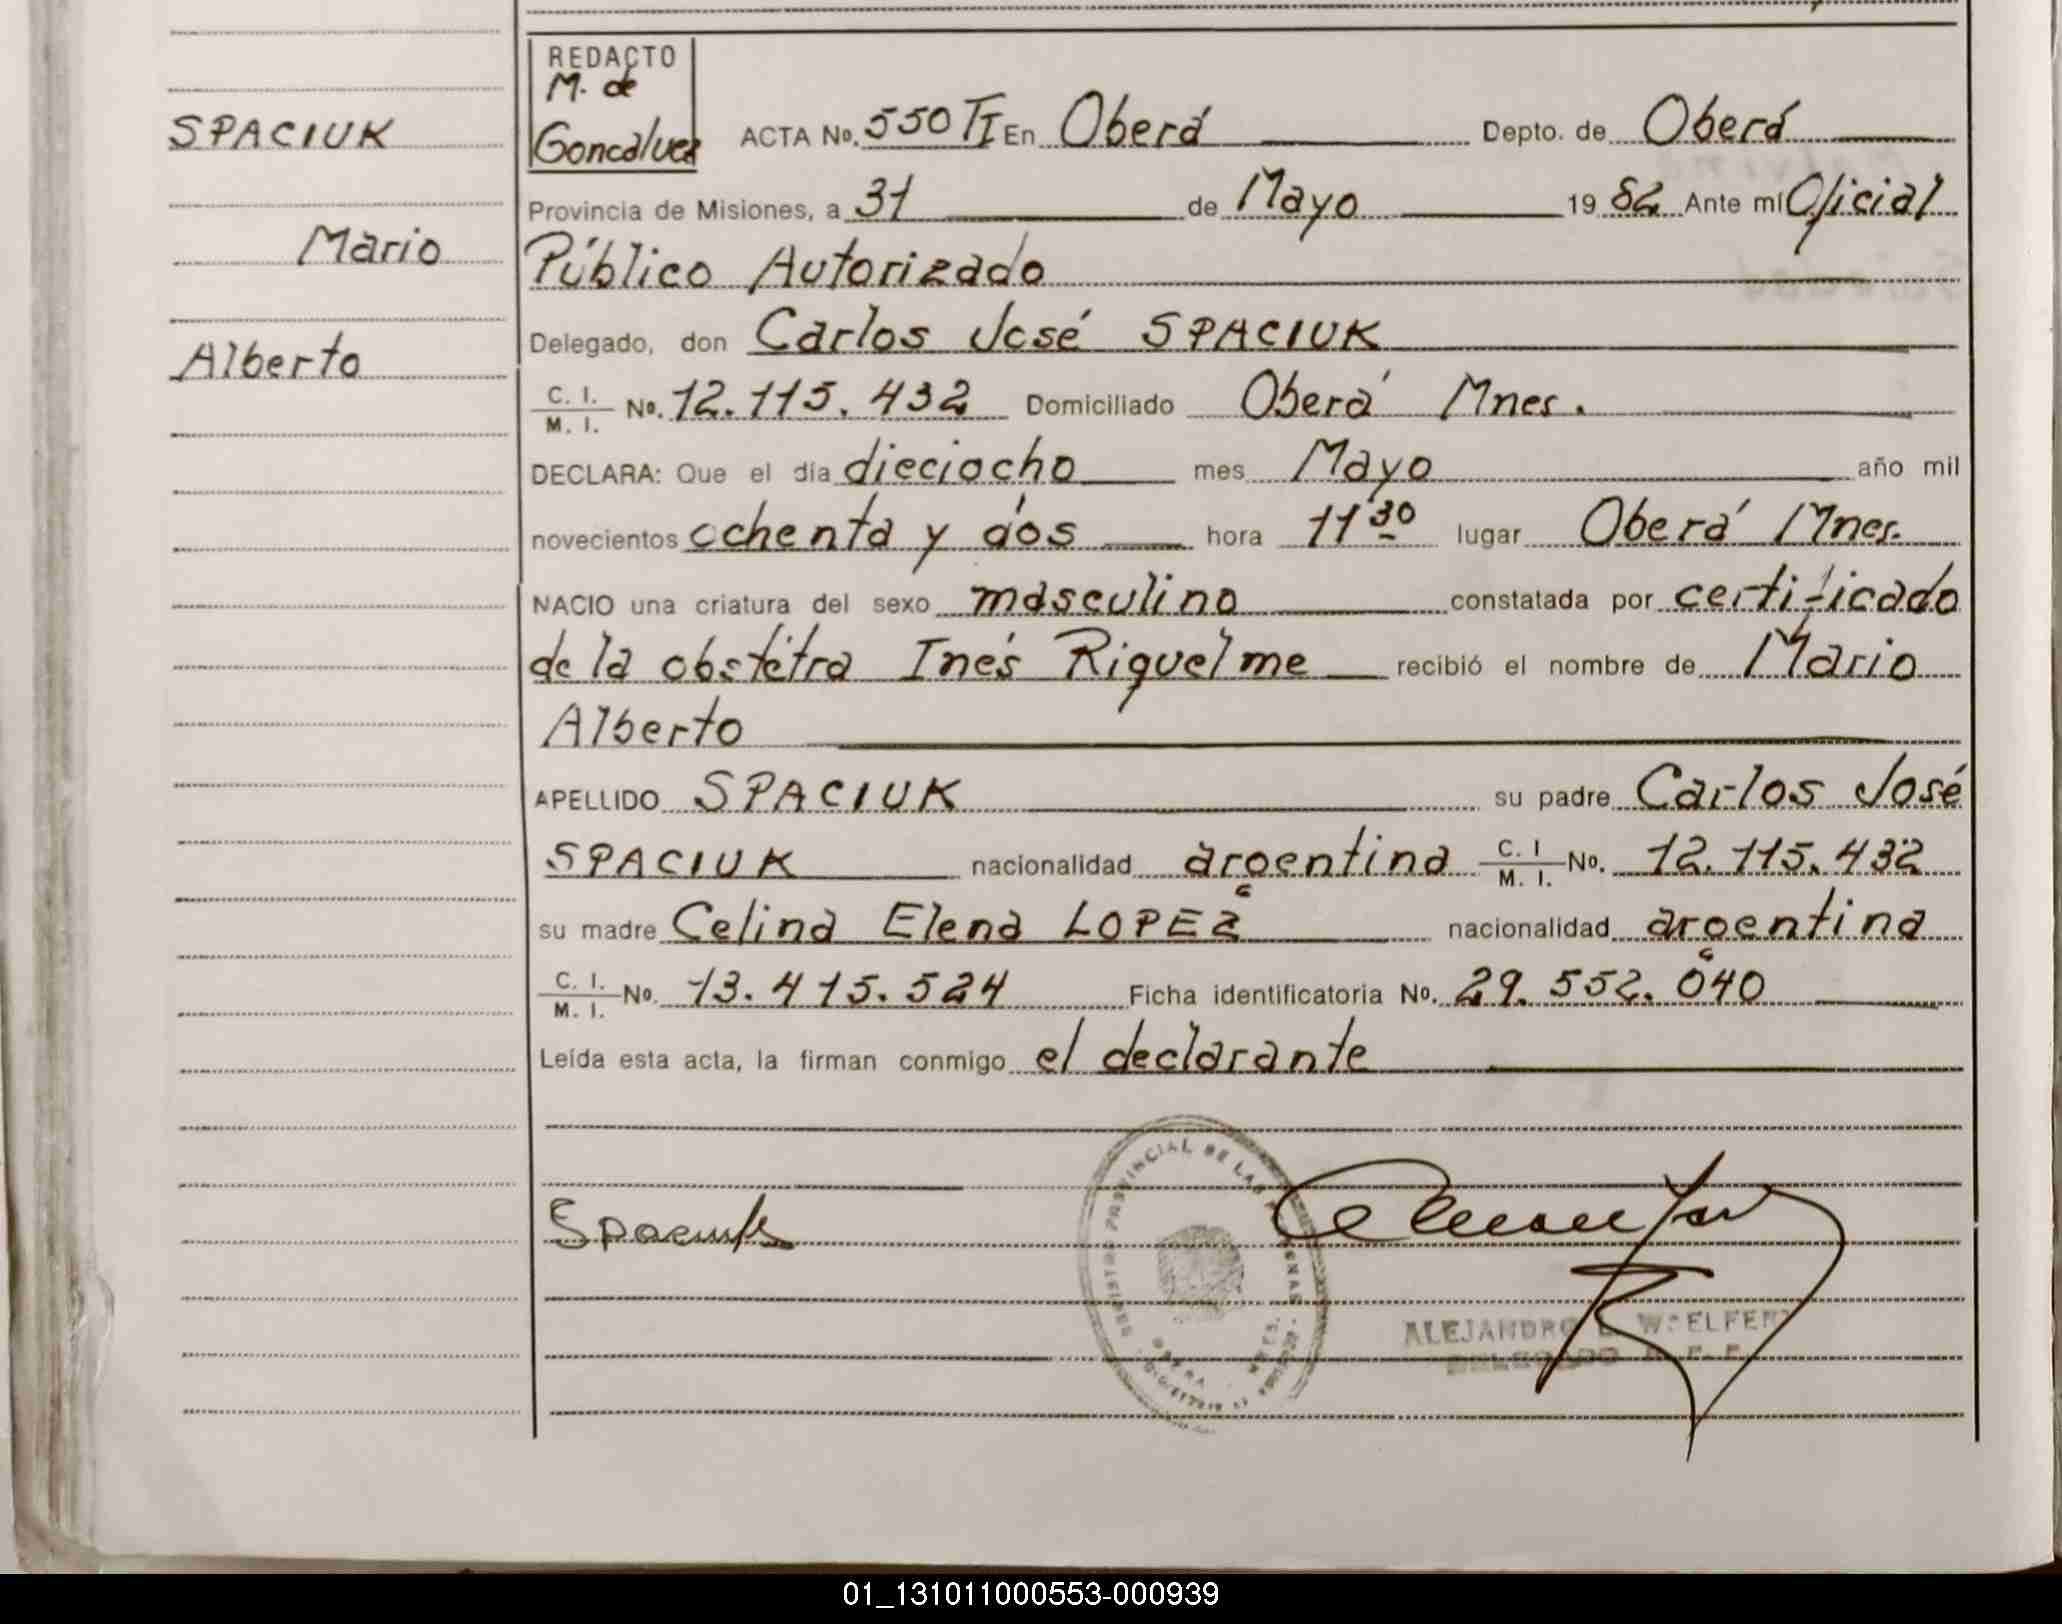 REDACTO
M. de
Goncalvez
SPACIUK
Mario
Alberto
ACTA No. 550 TI En Oberá Depto. de Oberá
Provincia de Misiones, a 31 de Mayo 19 82 Ante mí Oficial
Público Autorizado
Delegado, don Carlos José SPACIUK
C. I.
M. I. No. 12.115.432 Domiciliado Oberá Mnes.
DECLARA: Que el día dieciocho mes Mayo año mil
novecientos ochenta y dos hora 11 30 lugar Oberá Mnes.
NACIO una criatura del sexo masculino constatada por certificado
de la obstétra Inés Riquelme recibió el nombre de Mario
Alberto
APELLIDO SPACIUK su padre Carlos José
SPACIUK nacionalidad argentina C. I M. I. No. 12.115.432
su madre Celina Elena LOPEZ nacionalidad argentina
C. I.
M. I. No. 13.415.524 Ficha identificatoria No. 29.552.040
Leída esta acta, la firman conmigo el declarante
Spaciuk
REGISTRO PROVINCIAL DE LAS PERSONAS
OBERA
ALEJANDRO
DELEGADO
01_131011000553-000939